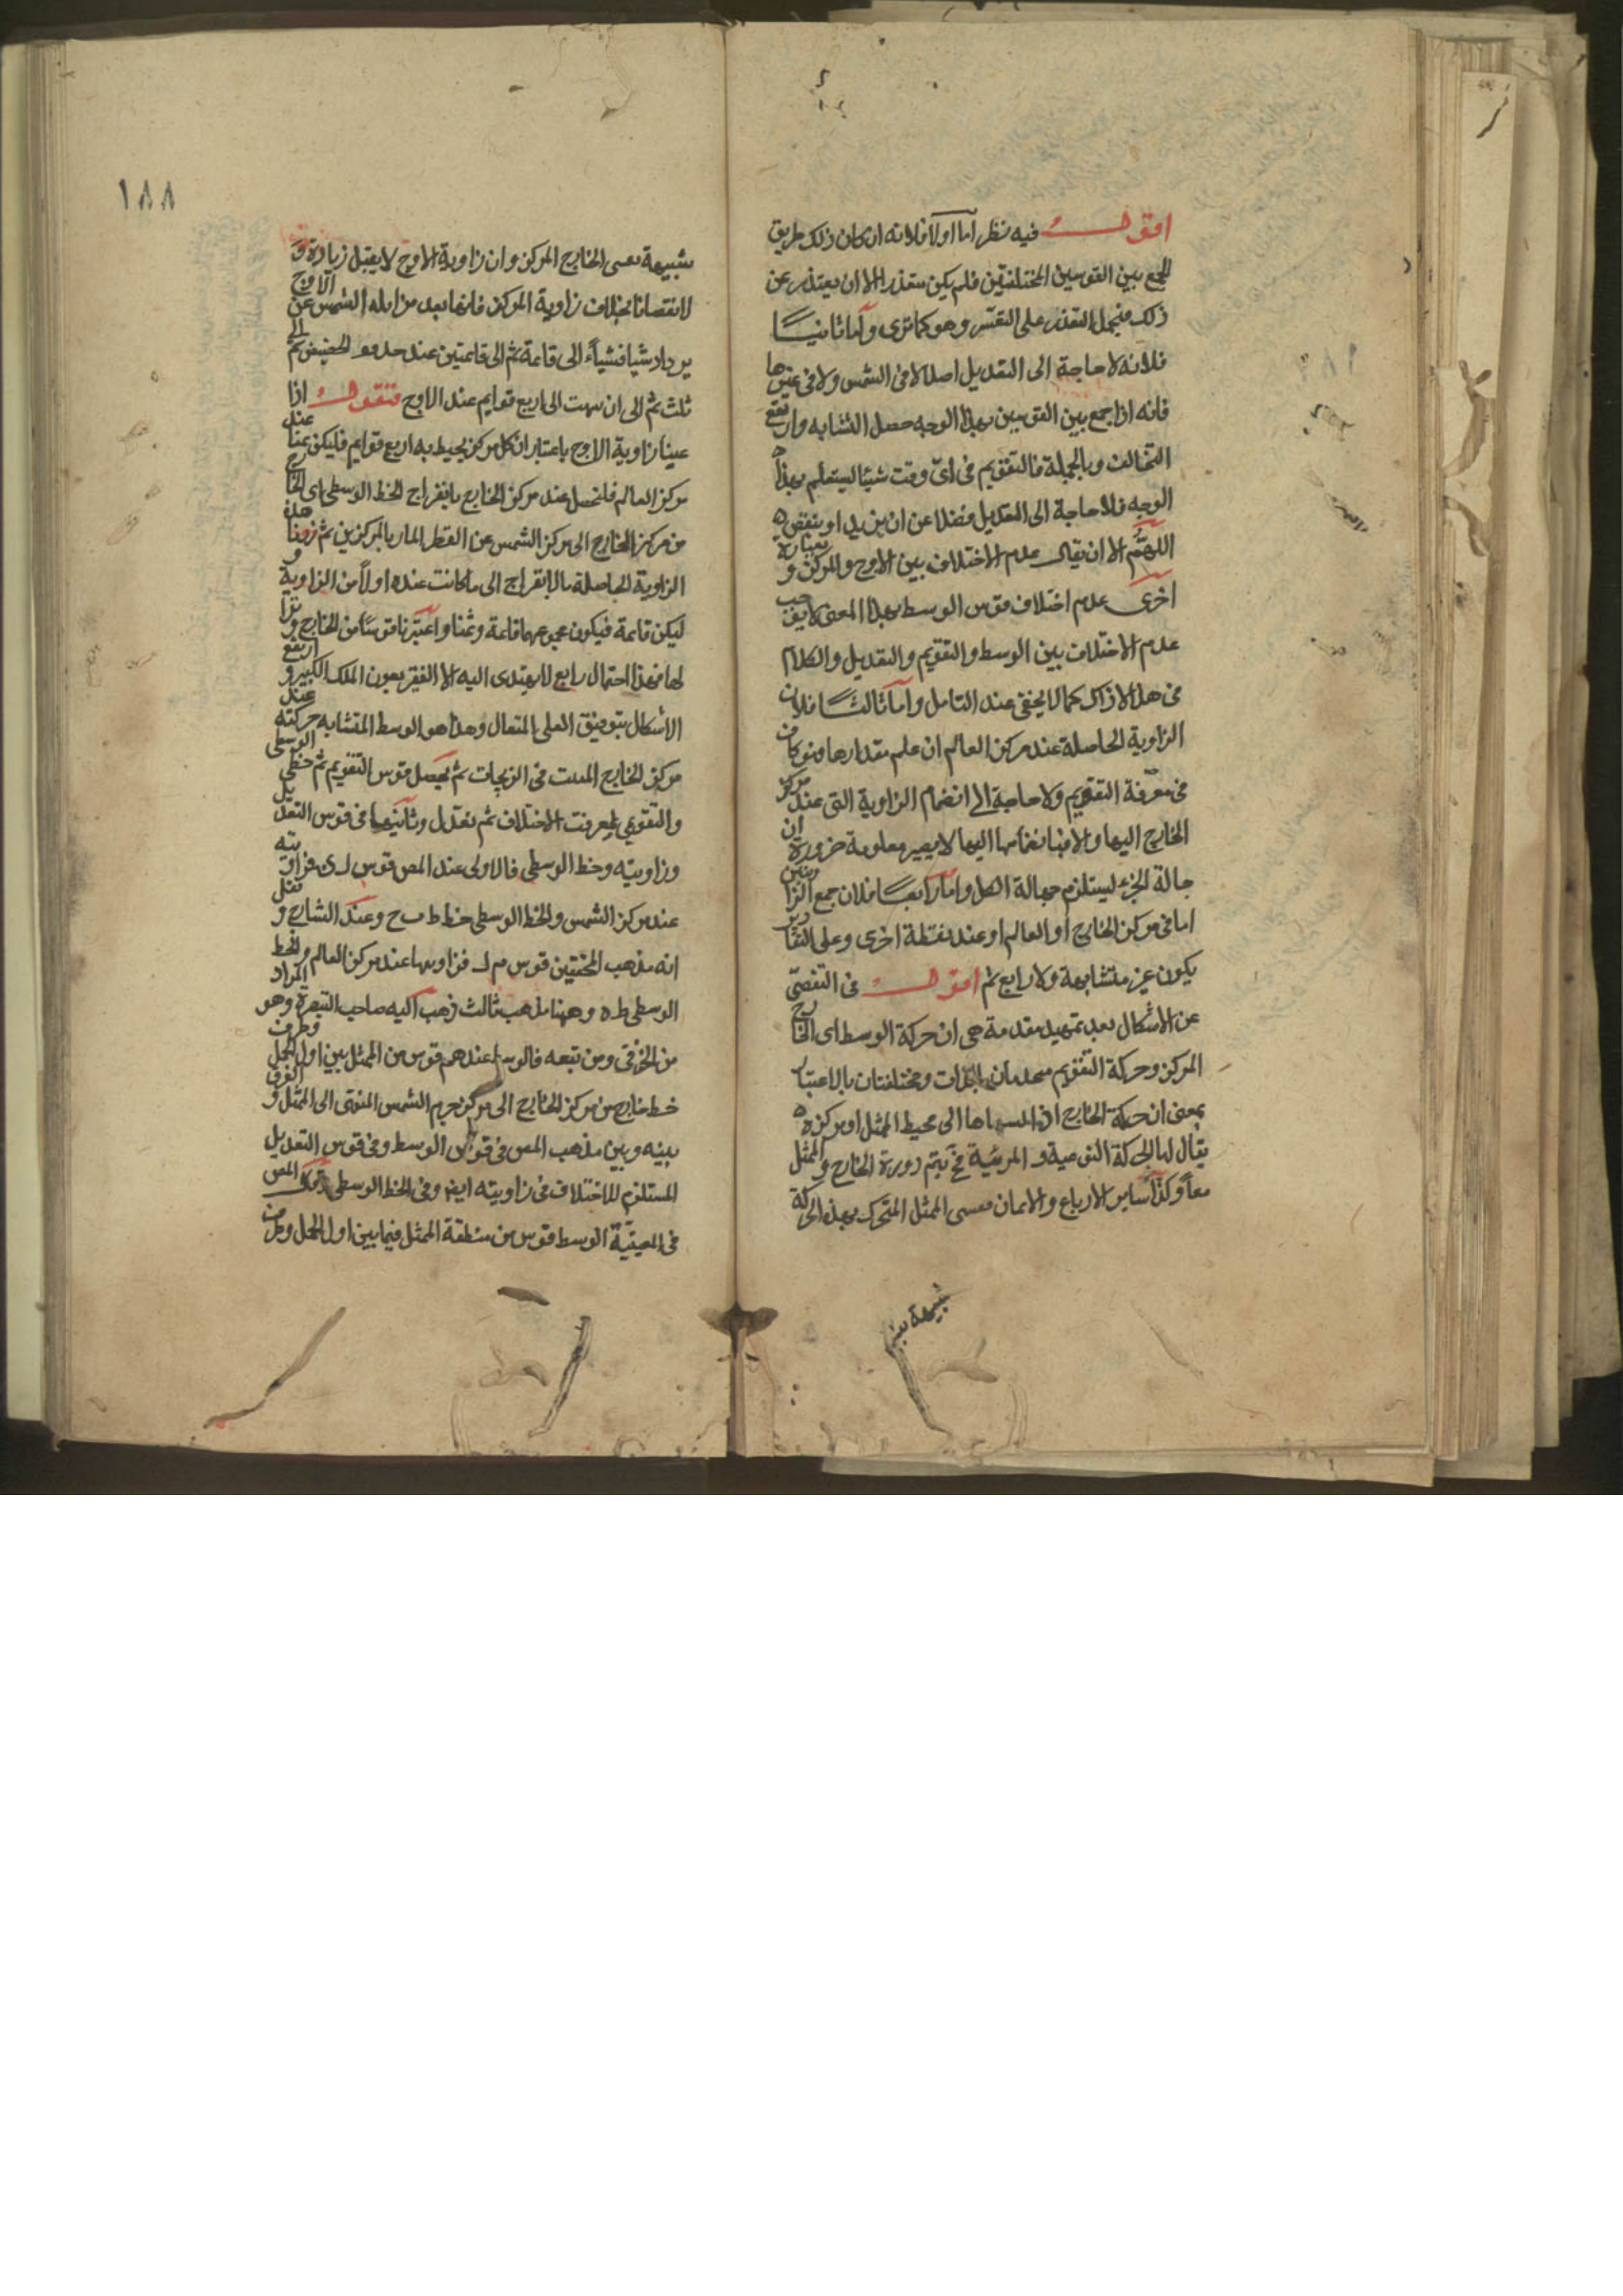 اقول فيه نظر اما اولا فلانه ان كان ذلك طريق
الجمع بين القوسين المختلفتين فلم يكن متعذرا الا ان يعتذر عن
ذلك فيحمل التعذر على التعسر وهو كما ترى واما ثانيا
فلانه لا حاجة الى التعديل اصلا لا فى الشمس ولا فى غيرها
فانه اذا جمع بين القوسين بهذا الوجه حصل التشابه وارتفع
التخالف وبالجملة فالتقويم فى اى وقت شيئا ليستعلم بهذا
الوجه فلا حاجة الى التعديل فضلا عن ان يزيد او ينقص
اللهم الا ان يقال عدم الاختلاف بين الاوج والمركز وبعبارة
اخرى عدم اختلاف قوس الوسط بهذا المعنى لا يوجب
عدم الاختلاف بين الوسط والتقويم والتعديل والكلام
فى هذا لا ذاك كما لا يخفى عند التامل واما ثالثا فلان
الزاوية الحاصلة عند مركز العالم ان علم مقدارها فهو كاف
فى معرفة التقويم ولا حاجة الى انضمام الزاوية التى عند مركز
الخارج اليها والا فبانضمامها اليها لا يصير معلومة ضرورة ان
جهالة الجزء ليستلزم جهالة الكل واما رابعا فلان جمع الزاويتين
اما فى مركز الخارج او العالم او عند نقطة اخرى وعلى التقادير
يكون غير متشابهة ولا رابع ثم اقول فى التفصى
عن الاشكال بعد تمهيد مقدمة هى ان حركة الوسط اى الخارج
المركز وحركة التقويم متحدتان بالذات ومختلفتان بالاعتبار
بمعنى ان حركة الخارج اذا الى محيط الممثل او مركزه
يقال لها الحركة التقويمية والمرئية فح يتم دورة الخارج والممثل
معا وكذا ساير الارباع والاثمان الممثل المتحرك بهذه الحركة
شبيهة
١٨٨
شبيهة الخارج المركز وان زاوية الاوج لا يقبل زيادة و
لا نقصانا بخلاف زاوية المركز فانها بعد مزايلة الشمس عن الاوج
يزداد شيا فشيا الى قائمة ثم الى قائمتين عند الحضيض ثم الى
ثلث ثم الى ان انتهت الى اربع قوايم عند الاوج فنقول اذا
عينا زاوية الاوج باعتبار ان كل مركز يحيط به اربع قوايم فليكن ثمنا عند
مركز العالم فلنحصل عند مركز الخارج بانفراج الخط الوسطى اى الخارج
من مركز الخارج الى مركز الشمس عن القطر المار بالمركزين ثم زدنا هذه
الزاوية الحاصلة بالانفراج الى ما كانت عنده اولا من الزاوية و
ليكن قائمة فيكون مجموعهما قائمة وثمنا واعتبرنا قوسا من الخارج وترا
لها فهذا احتمال رابع لا يهتدى اليه الا الفقير بعون الملك الكبير وارتفع
الاشكال بتوفيق العلى المتعال وهذا هو الوسط المتشابه حركته عند
مركز الخارج المثبت فى الزيجات ثم يحصل قوس التقويم ثم خطى الوسطى
والتقويمى ليعرفت الاختلاف ثم يعدل وثانيهما فى قوس التعديل
وزاويته وخط الوسطى فالاولى عند المص قوس ل ى فزاويته
عند مركز الشمس والخط الوسطى خط ط ب ح وعند الشارح ونقل
انه مذهب المحققين قوس م ل فزاويتها عند مركز العالم والخط
الوسطى ط ه وههنا مذهب ثالث ذهب اليه صاحب التبصرة وهو المراد
من الخرقى ومن تبعه فالوسط عندهم قوس من الممثل بين اول الحمل وطرف
خط خارج من مركز الخارج الى مركز جرم الشمس المنتهى الى الممثل والفرق
بينه وبين مذهب المص فى قوس الوسط وفى قوس التعديل
المستلزم للاختلاف فى زاويته ايضا وفى الخط الوسطى المص
فى الوسط قوس من منطقة الممثل فيما بين اول الحمل وطرف